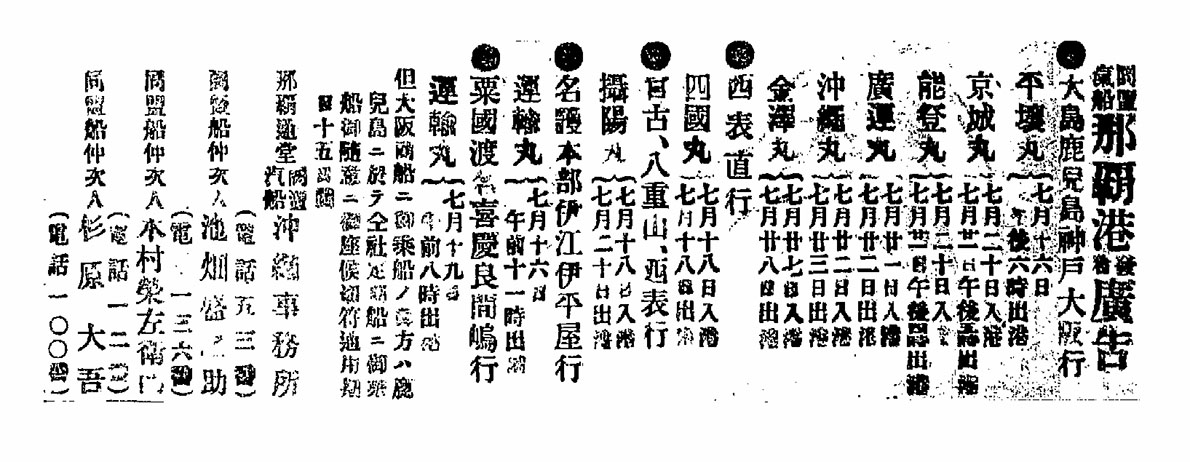 同盟汽船那覇港發着廣告
●大島鹿兒島神戸大阪行
平壤丸 七月十六日午後六時出港
京城丸 七月二十日入港 七月廿一日午後出港
能登丸 七月二十日入 七月廿一日午後出港
廣運丸 七月廿一日入港 七月廿二日出港
沖繩丸 七月廿二日入港 七月廿三日出港
金澤丸 七月廿七日入港 七月廿八日出港
●西表直行
四國丸 七月十八日入港 七月十八日出港
●宮古、八重山、西表行
攝陽丸 七月十八日入港 七月二十日出港
●名護本部伊江伊平屋行
運輸丸 七月十六日午前十一時出港
●粟國渡名喜慶良間嶋行
運輸丸 七月十九日午前八時出港
但大阪商船ニ御乘船ノ貴方ハ鹿
兒島ニ於テ全社定期船ニ御乘
船御隨意ニ御座候切符通用期
日十五日間
那覇通堂 同盟汽船 沖繩事務所
(電話五三番)
同盟船仲次人 池畑盛之助
(電 一三六番)
同盟船仲次人 木村榮左衛門
(電話一二 番)
同盟船仲次人 杉原大吾
(電話一〇〇番)